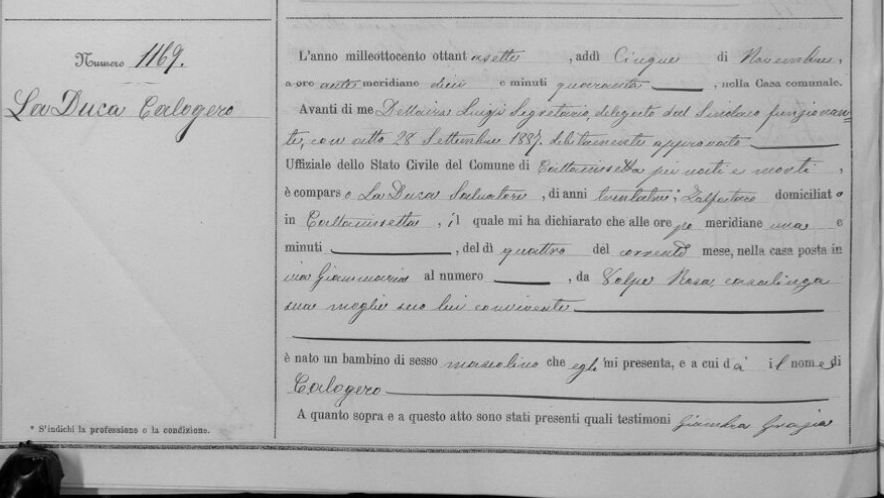 Numero 1169.
La Duca Calogero
L'anno milleottocento ottantasette, addì Cinque di Novembre,
a ore ante meridiane dieci e minuti quaranta, nella Casa comunale.
Avanti di me Luigi Segretario, delegato dal Sindaco funzionan-
te, con atto 28 Settembre 1887. debitamente approvato
Uffiziale dello Stato Civile del Comune di Caltanissetta per nati e morti,
è comparso La Duca Salvatore, di anni Zolfataro domiciliato
in Caltanissetta, il quale mi ha dichiarato che alle ore po meridiane una e
minuti , del dì quattro del corrente mese, nella casa posta in
via Giammaria al numero , da Volpe Rosa, casalinga
sua moglie seco lui convivente
è nato un bambino di sesso mascolino che egli mi presenta, e a cui dà il nome di
Calogero
A quanto sopra e a questo atto sono stati presenti quali testimoni Giambra Grazia
* S'indichi la professione o la condizione.